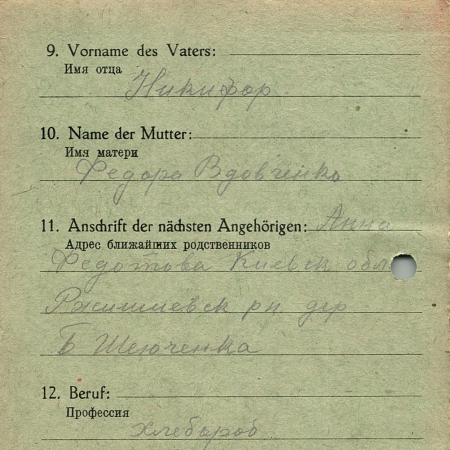 9. Vorname des Vaters:
Имя отца
Никифор.
10. Name der Mutter:
Имя матери
Федора Вдовченко
11. Anschrift der nächsten Angehörigen: Анна
Адрес ближайших родственников
Федотова Киевск обл
Ржищевск рн. дер
Б
12. Beruf:
Профессия
хлебороб